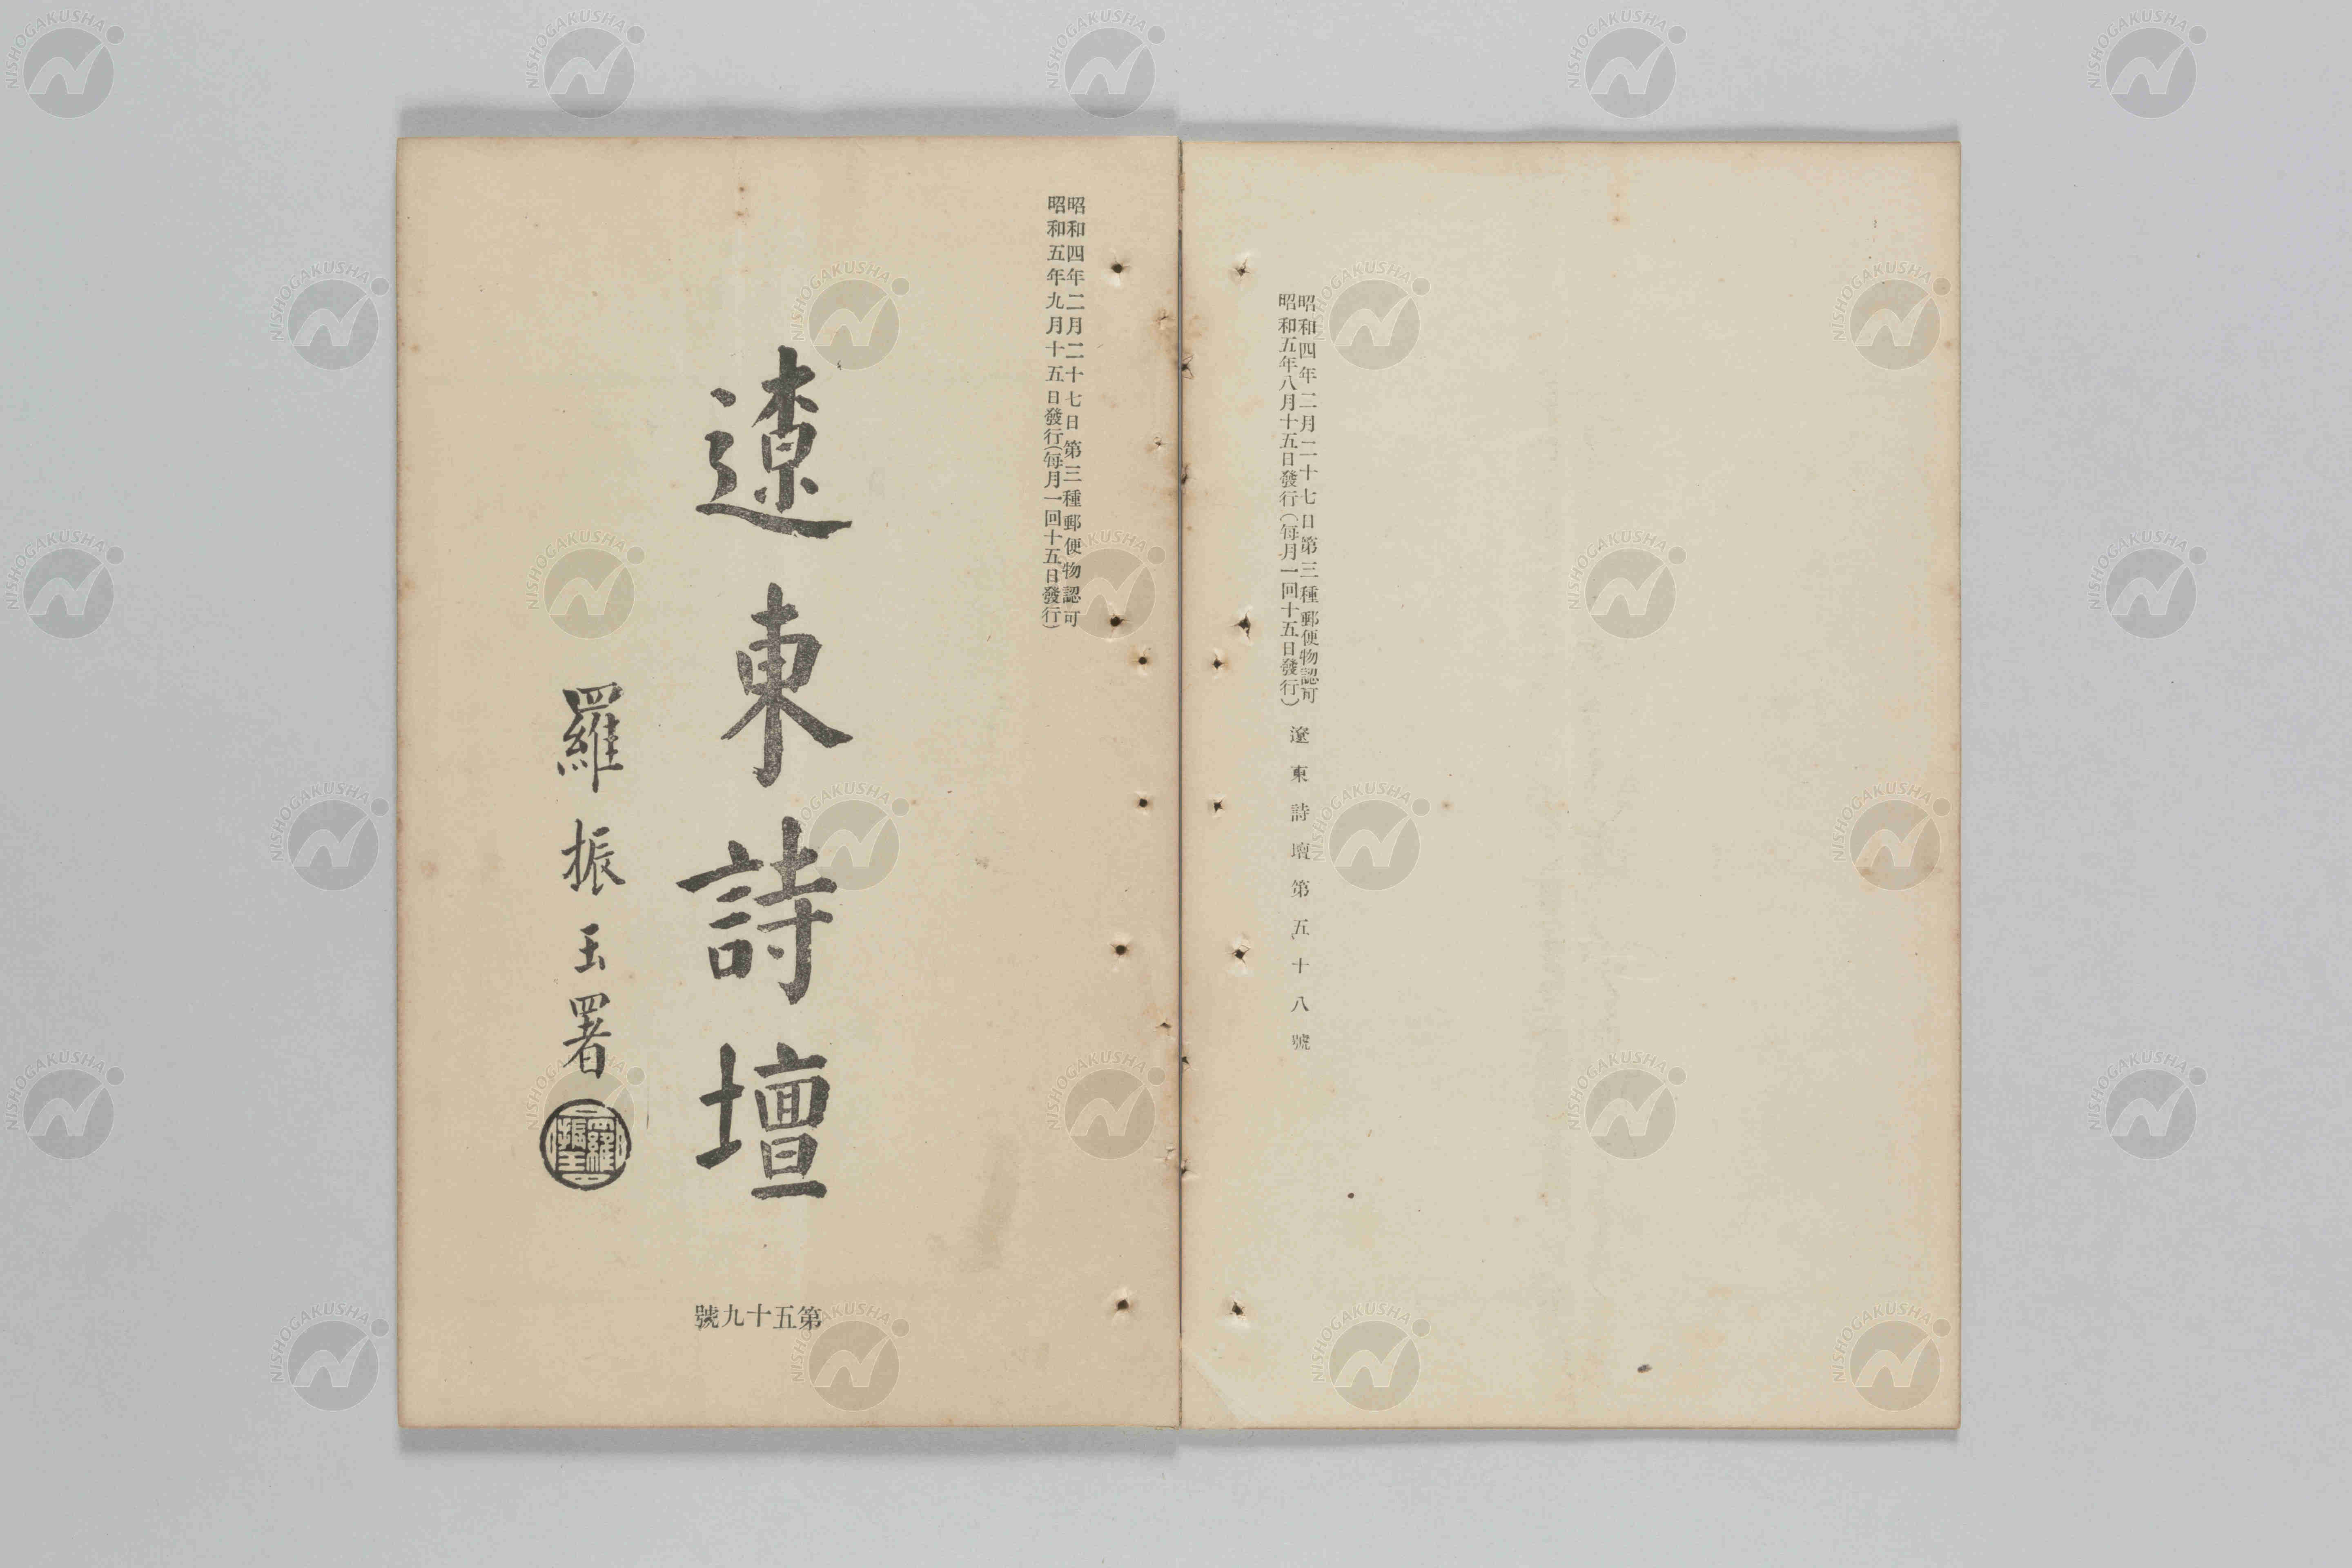 昭和四年二月二十七日第三種郵便物認可
昭和五年八月十五日發行(每月一回十五日發行)
遼東詩壇第五十八號
昭和四年二月二十七日第三種郵便物認可
昭和五年九月十五日發行(每月一回十五日發行)
遼東詩壇
羅振玉署
號九十五第
NISHOGAKUSHA